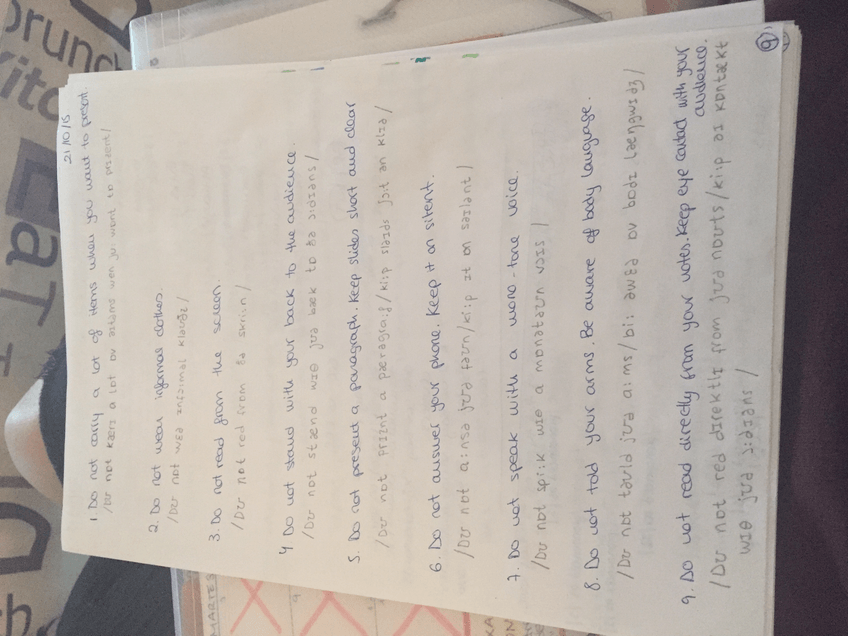 21/10/15
1. Do not carry a lot of items when you want to present.
/Dʊ not kæri a lot ov aɪtəms wen ju: wont to prɪsent/
2. Do not wear informal clothes.
/Dʊ not weə ɪnfɔ:məl klaʊðz/
3. Do not read from the screen
/Dʊ not red from ðə skri:n/
4 Do not stand with your back to the audience.
/Dʊ not stænd wɪθ jʊə bæk to ðə ɔ:dɪəns/
5. Do not present a paragraph. Keep slides short and clear
/Dʊ not prɪznt a pærəgra:f/ki:p slaɪds ʃɔ:t ən klɪə/
6. Do not answer your phone. Keep it on silent.
/Dʊ not a:nsə jʊə fəʊn/ki:p ɪt on saɪlənt/
7. Do not speak with a mono-tone voice.
/Dʊ not spi:k wɪθ a monətəʊn voɪs/
8. Do not told your arms. Be aware of body language.
/Dʊ not təʊld jʊə a:ms/bi: əweə ov bodɪ læŋgwɪdʒ/
9. Do not read directly from your notes. Keep eye contact with your
audience.
/Dʊ not red dɪrektlɪ from jʊə nəʊts/ki:p aɪ kontækt
wɪθ jʊə ɔ:dɪəns/
9
prund
kitc
EaT
MARTES